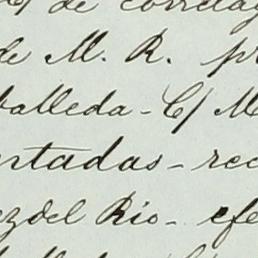 de correta
de M. R. p
balleda - C/ M
ntadas - rec
ez del Rio - efe